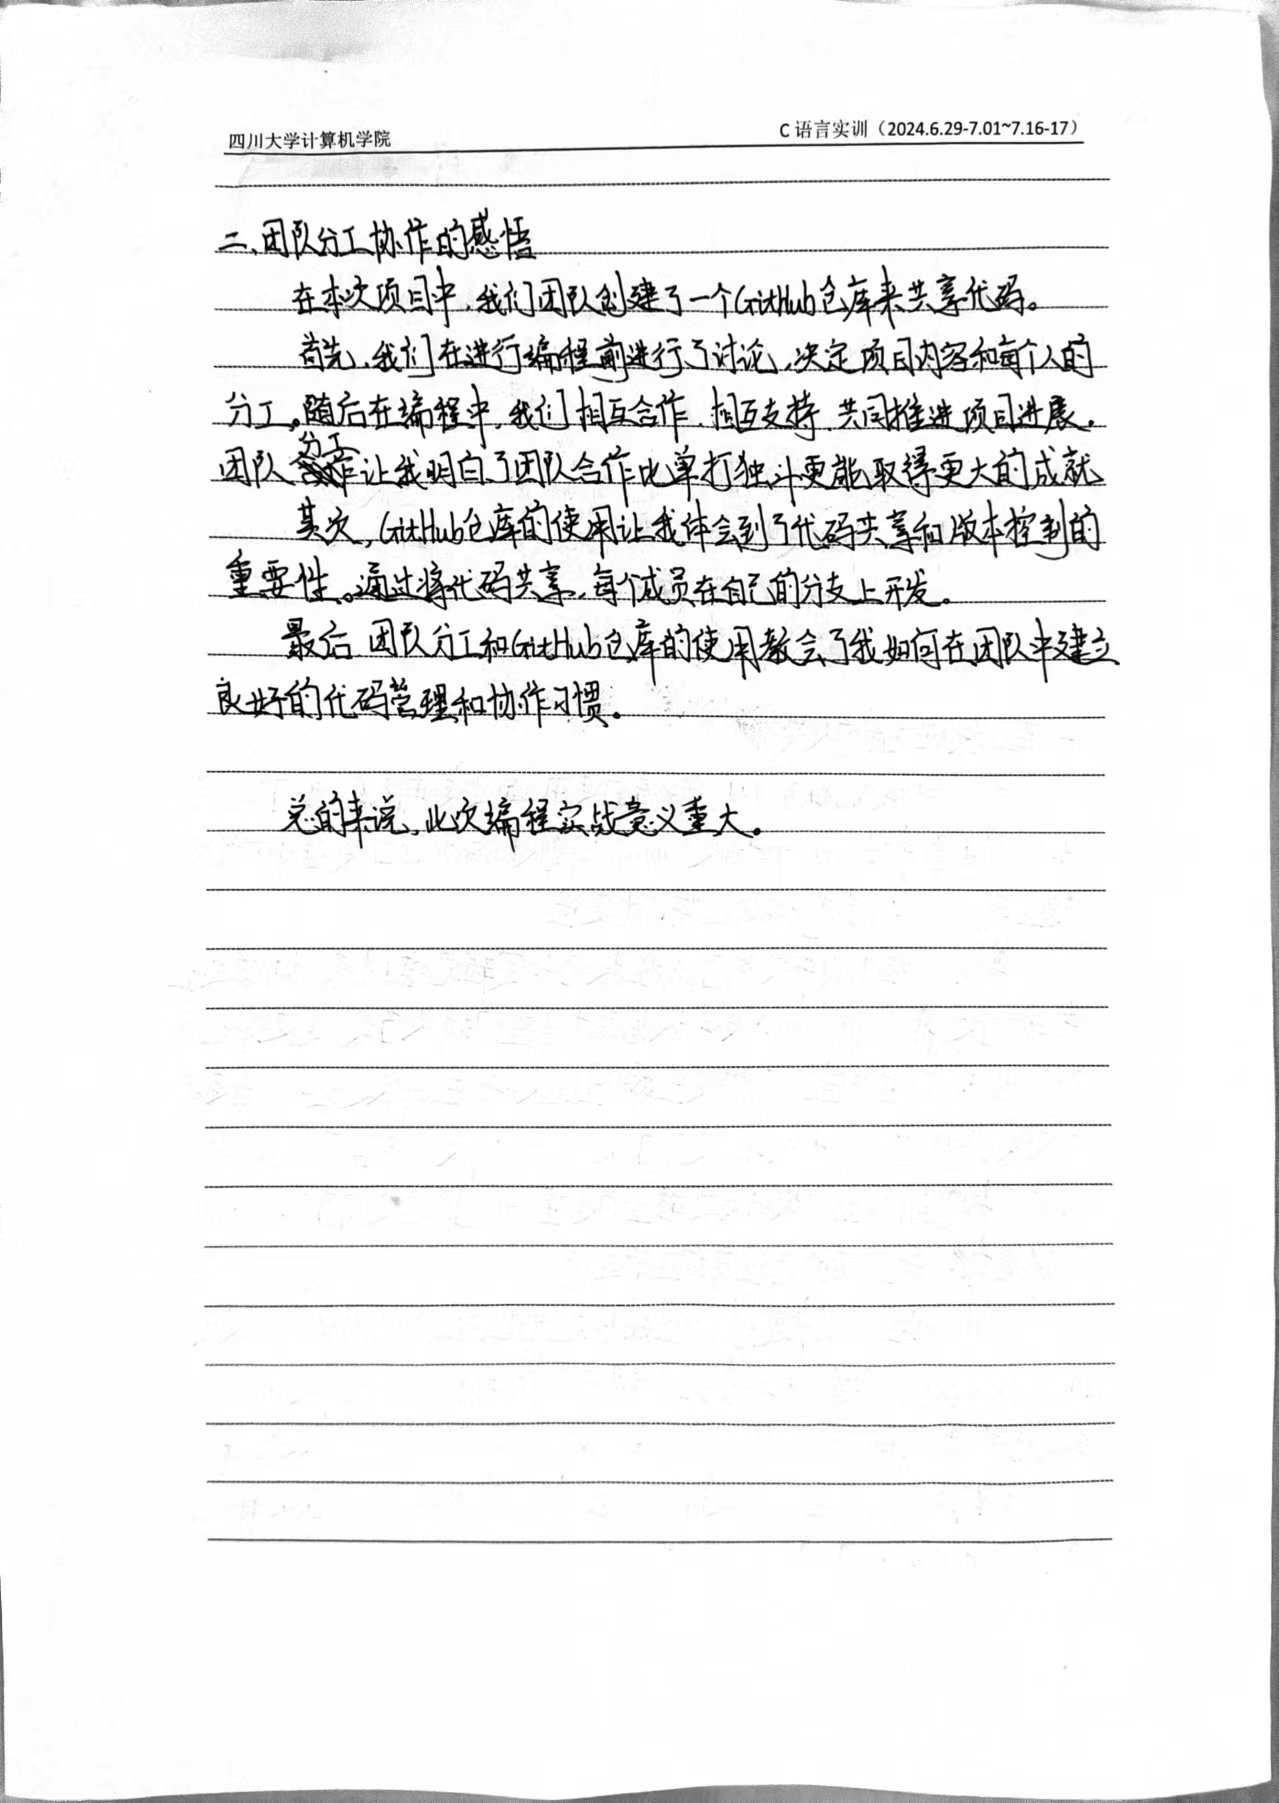 四川大学计算机学院
C 语言实训（2024.6.29-7.01~7.16-17）
二、团队分工协作的感悟
在本次项目中，我们团队创建了一个GitHub仓库来共享代码。
首先，我们在进行编程前进行了讨论，决定项目内容和每个人的
分工。随后在编程中，我们相互合作，相互支持，共同推进项目进展。
团队分工让我明白了团队合作比单打独斗更能取得更大的成就
其次，GitHub仓库的使用让我体会到了代码共享和版本控制的
重要性。通过将代码共享，每个成员在自己的分支上开发。
最后 团队分工和GitHub仓库的使用教会了我如何在团队中建立
良好的代码管理和协作习惯。
总的来说，此次编程实战意义重大。